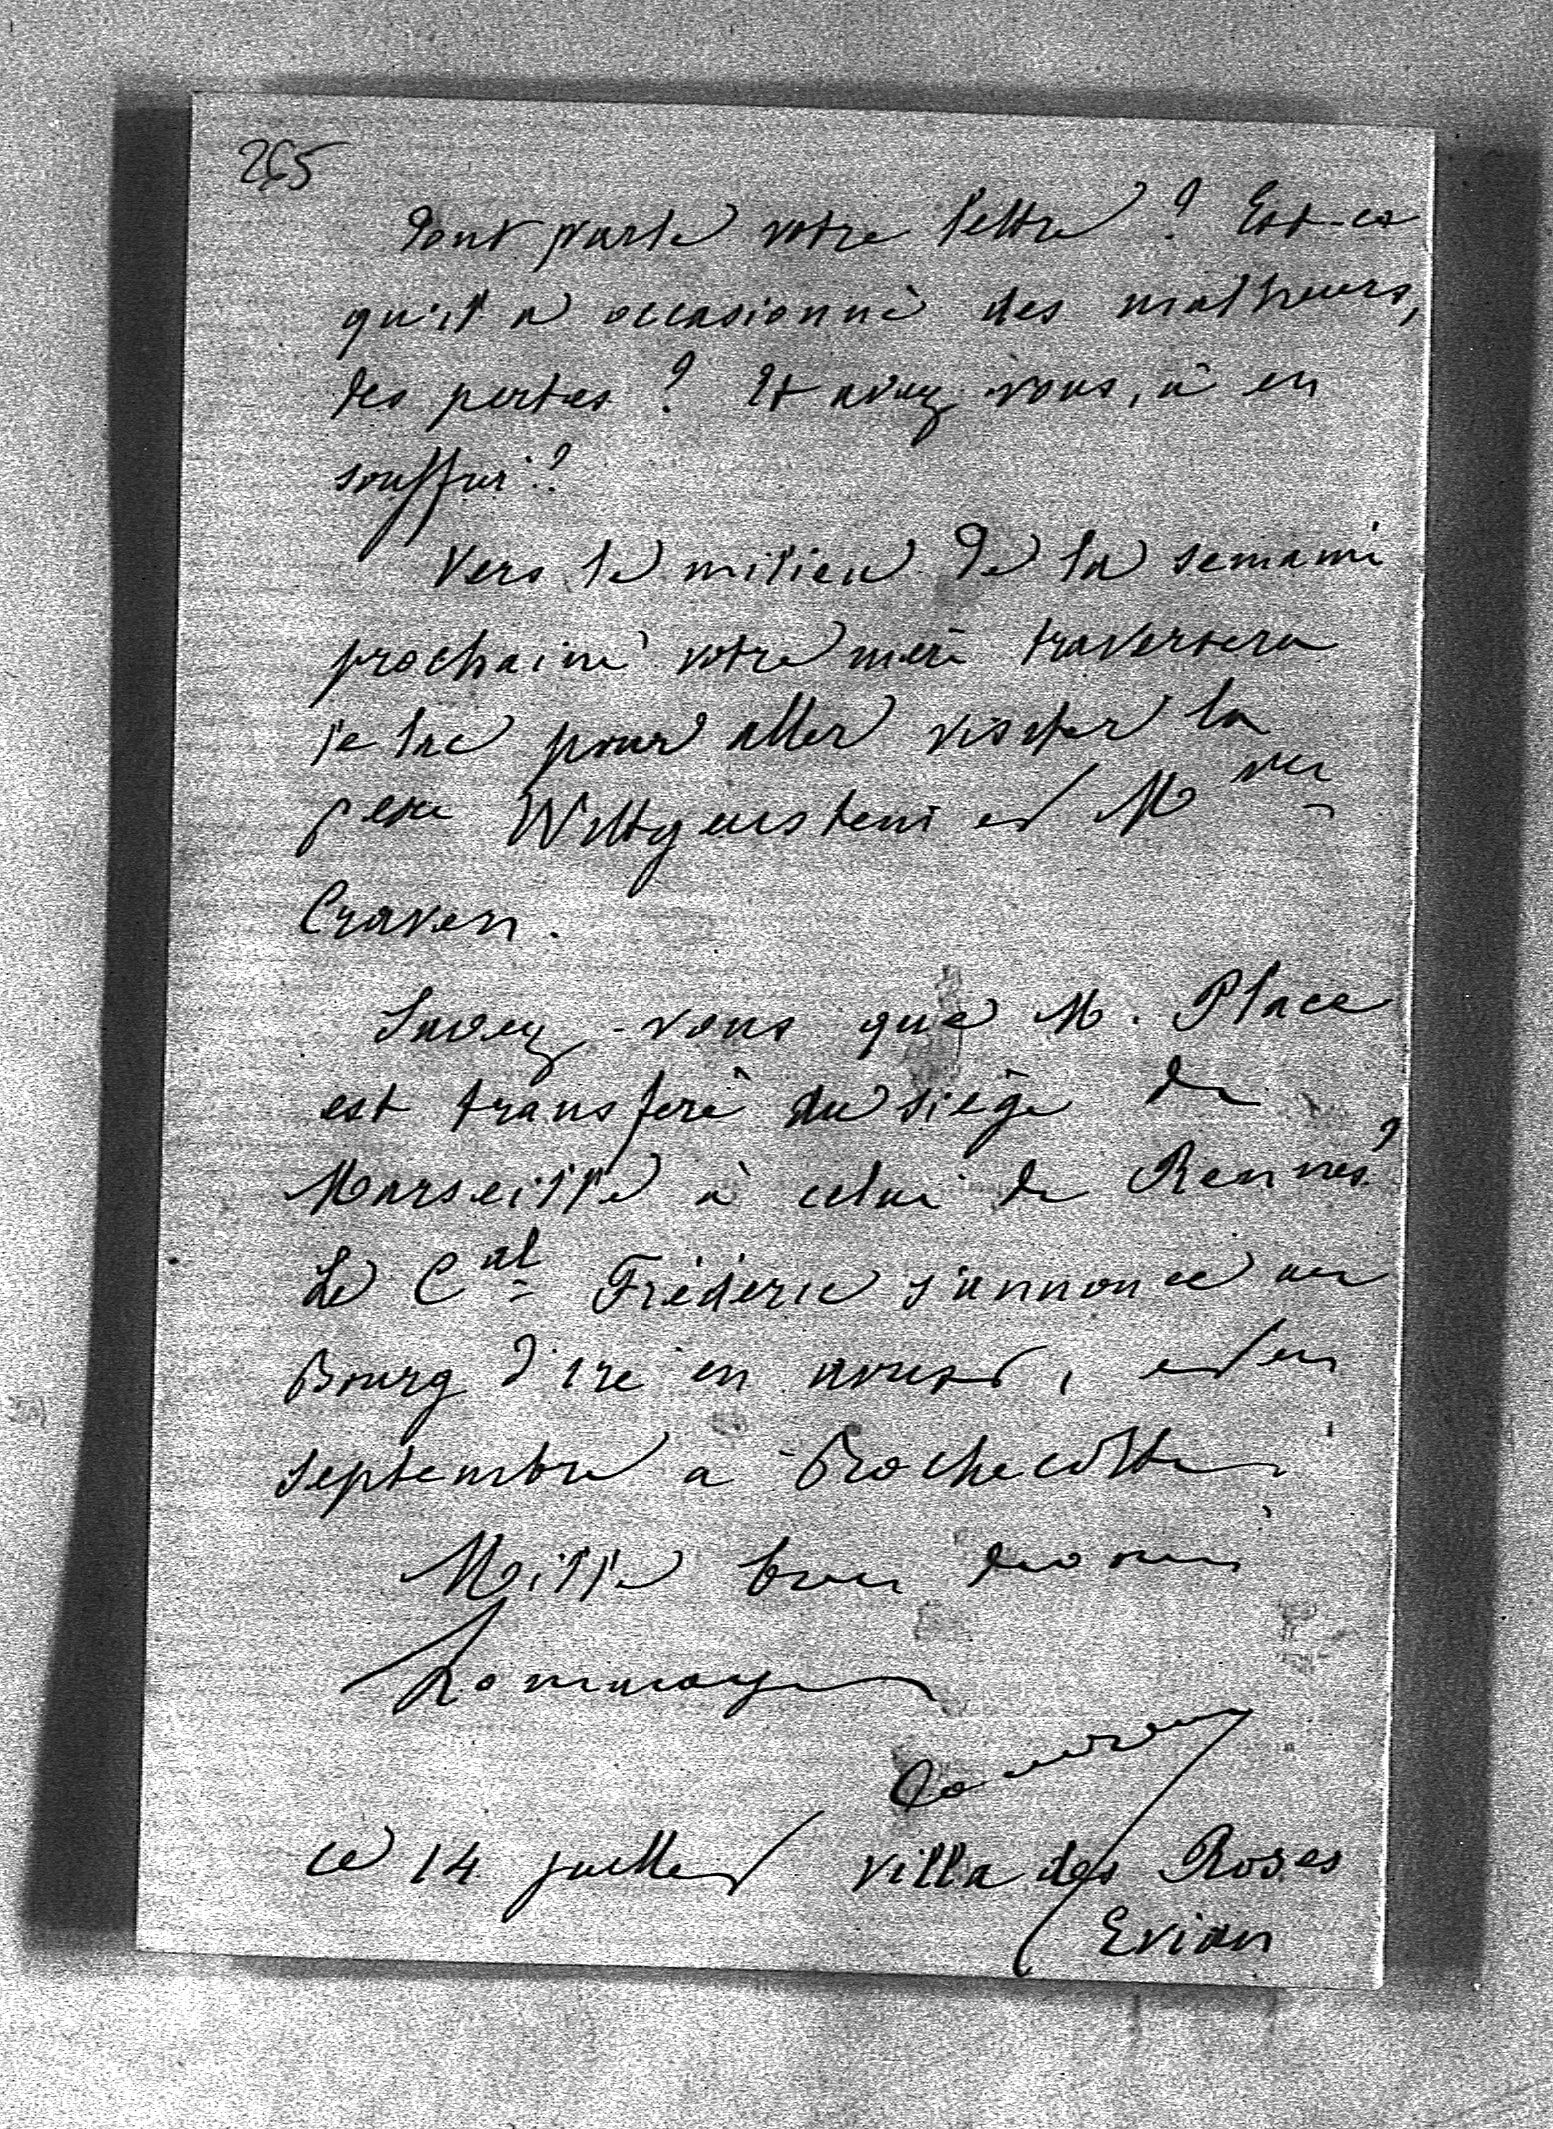 265
dont parle votre lettre ? Est-ce
qu'il a occasionné des malheurs,
des pertes ? Et avez-vous, à en
souffrir ?
Vers le milieu de la semaine
prochaine votre mère traversera
le lac pour aller visiter la
Pesse Wittgenstein et Mme
Craven.
Savez-vous que M. Place
est transféré du siège de
Marseille à celui de Rennes ?
Le Cal Fréderic s'annonce au
Bourg d'iré en aoust, et en
septembre à Rochecotte
Mille bien
ce 14 juillet Villa des Roses
Evian